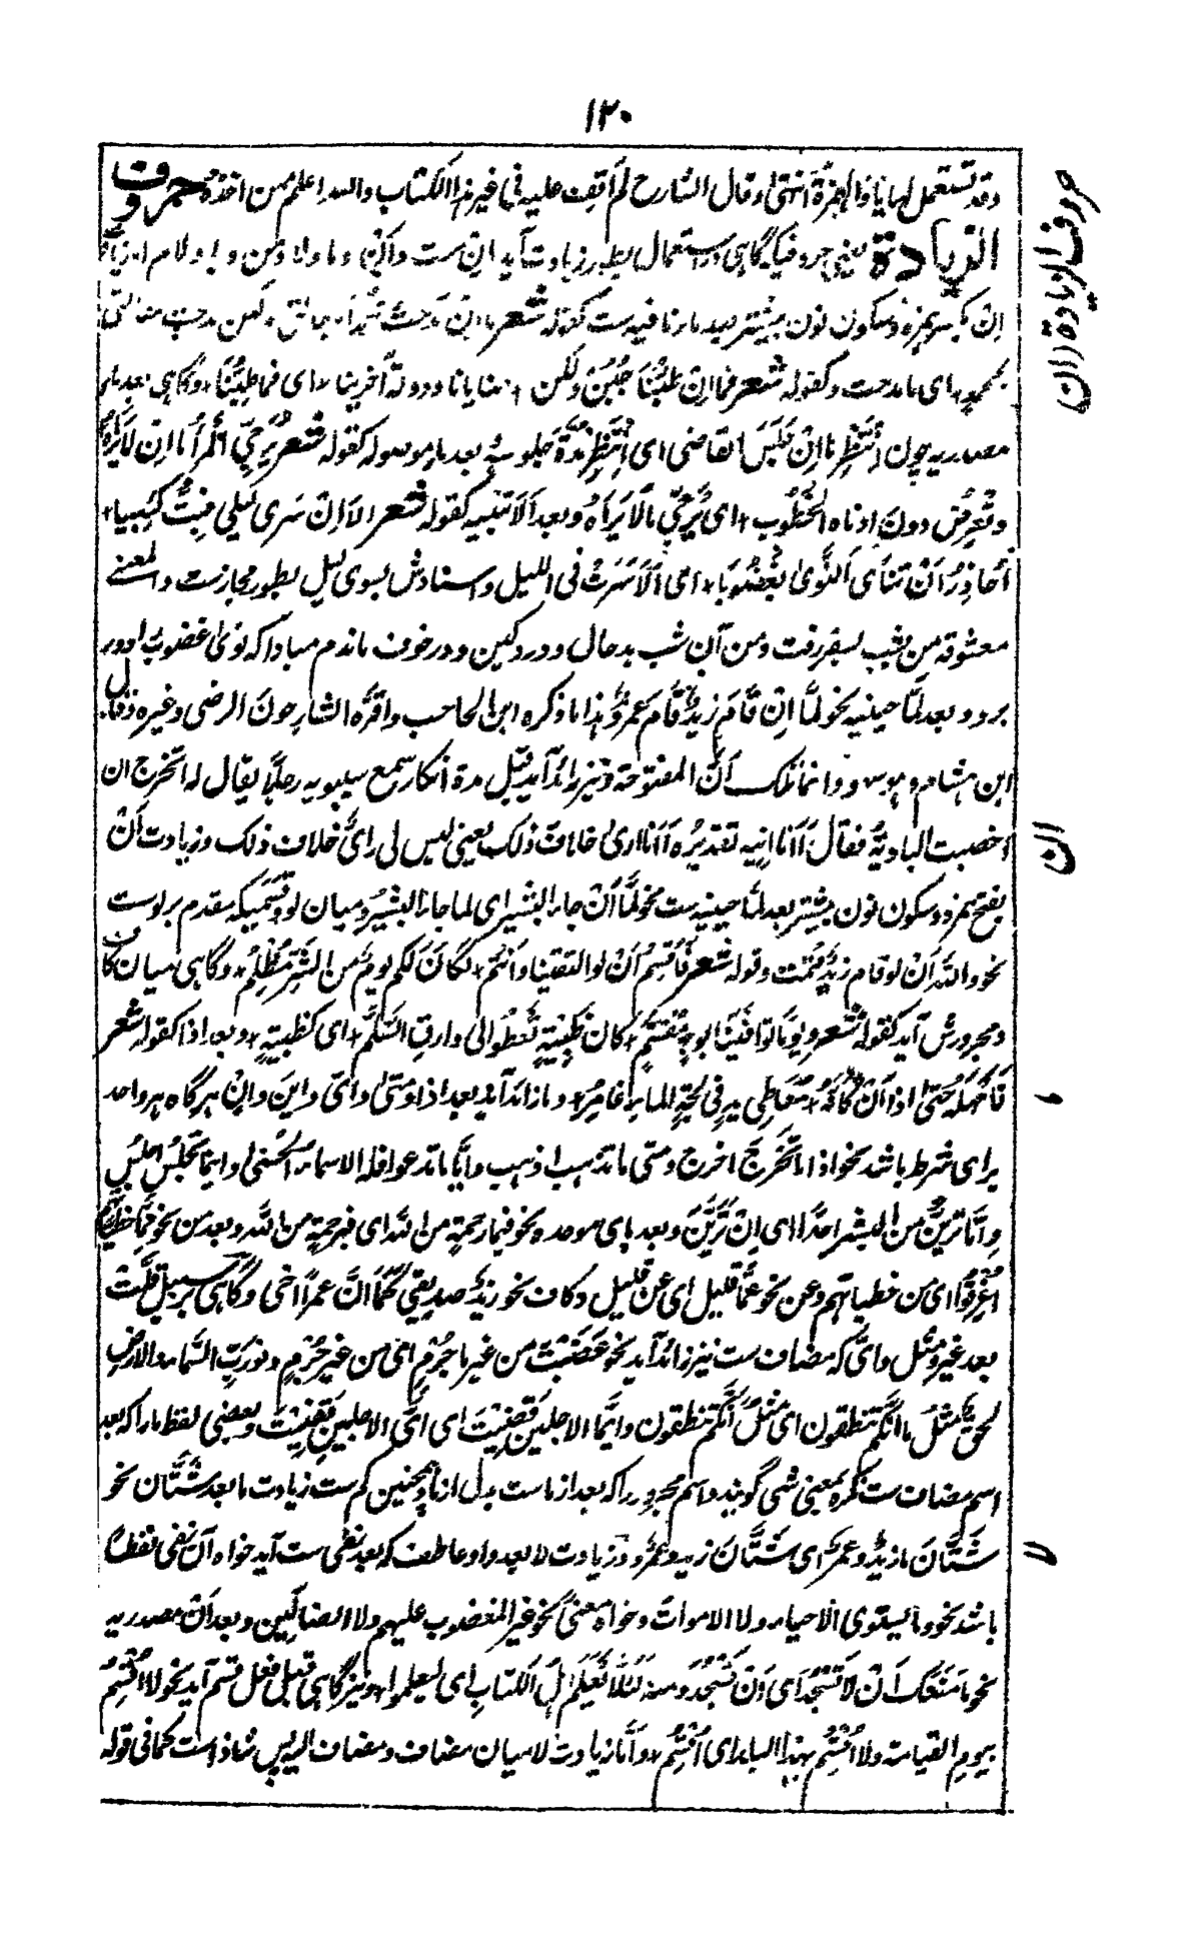 ١٢٠
وقد تستعمل ایا یا والهمزة انتهی وقال الشارح لم اقف علیه فی غیر هذا الکتاب والله اعلم ممن اخذه حروف
الزیادة یعنی حروفیکه گاهی در استعمال بطور زیادت آید ان ست وأن وما ولا ومن وبا ولام اما زیادت
ان بکسر همزه وسکون نون بیشتر بعد ما نافیه ست کقوله شعر ما ان مدحت محمدا بمقالتی ولکن مدحت مقالتی
بمحمد ای ما مدحت وکقوله شعر فما ان طبنا جبن ولکن منایانا ودولة آخرینا ای فما طبنا وگاهی بعد مای
مصدریه چون انتظر ما ان جلس القاضی ای انتظر مدة جلوسه بعد ما موصوله کقوله شعر یرجی المرء ما ان لا یراه
وتعرض دون ادناه الخطوب ای یرجی ما لا یراه وبعد الا تنبیه کقوله شعر الا ان سری لیلی فبت کئیبا
احاذر ان تنأی النوی بغضوبا ای الا سرت فی اللیل واسنادش بسوی لیل بطور مجازست والمعنے
معشوقه من بشب بسفر رفت ومن آن شب بدحال ودردگین ودر خوف ماندم مبادا که نوی غضوب را دور
برد وبعد لما حینیه نحو لما ان قام زید قام عمرو هذا ما ذکره ابن الحاجب واقره الشارحون الرضی وغیره وقال
ابن هشام وهو سهو وانما تلک أن المفتوحة ونیز زائد آید قبل مدة انکار سمع سیبویه رجلا یقال له اتخرج ان
اخصبت البادیة فقال أانا انیه تقدیره أانا اری خلاف ذلک یعنی لیس لی رای خلاف ذلک وزیادت أن
بفتح همزه وسکون نون بیشتر بعد لما حینیه ست نحو لما أن جاء البشیر ای لما جاء البشیر ومیان لو وقسمیکه مقدم بر لوست
نحو والله أن لو قام زید قمت وقوله شعر فاقسم أن لو التقینا وانتم لکان لکم یوم من الشر مظلم وگاهی میان کاف
ومجرورش آید کقوله شعر ویوما توافینا بوجه مقسم کان ظبیة تعطو الی وارق السلم ای کظبیة وبعد اذا کقوله شعر
فامهله حتی اذا أن کانه معاطی ید فی لجة الماء غامر وما زائد آید بعد اذا ومتی وای واین وان هرگاه هر واحد
برای شرط باشد نحو اذا ما تخرج اخرج ومتی ما تذهب اذهب وایاما تدعوا فله الاسماء الحسنی واینما تجلس اجلس
واما ترین من البشر احدا ای ان ترین وبعد بای موحده نحو فبما رحمة من الله ای فبرحمة من الله وبعد من نحو مما خطیئاتهم
اغرقوا ای من خطیاتهم وعن نحو عما قلیل ای عن قلیل وکاف نحو زید صدیقی کما ان عمرا اخی وگاهی بر سبیل قلت
بعد غیر ومثل وای که مضاف ست نیز زائد آید نحو غضبت من غیر ما جرم ای من غیر جرم وفورب السماء والارض
لحق مثل ما انکم تنطقون ای مثل انکم تنطقون وایما الاجلین قضیت ای ای الاجلین قضیت وبعضی لفظ ما را که بعد
اسم مضاف ست نکره بمعنی شی گویند واسم مجرور را که بعد از ماست بدل از ما وهمچنین کم ست زیادت ما بعد شتان نحو
شتان ما زید وعمرو ای شتان زید وعمرو وزیادت لا بعد واو عاطفه که بعد نفی ست آید خواه آن نفی لفظا
باشد نحو وما یستوی الاحیاء ولا الاموات وخواه معنی نحو غیر المغضوب علیهم ولا الضالین وبعد أن مصدریه
نحو ما منعک ان لا تسجد ای أن تسجد ومنه لئلا یعلم اهل الکتاب ای لیعلموا ونیز گاهی قبل فعل قسم آید نحو لا اقسم
بیوم القیامة ولا اقسم بهذا البلد ای اقسم واما زیادت لا میان مضاف ومضاف الیه پس شاذ است کما فی قوله
حروف الزیادة (ان
أن
ما
لا